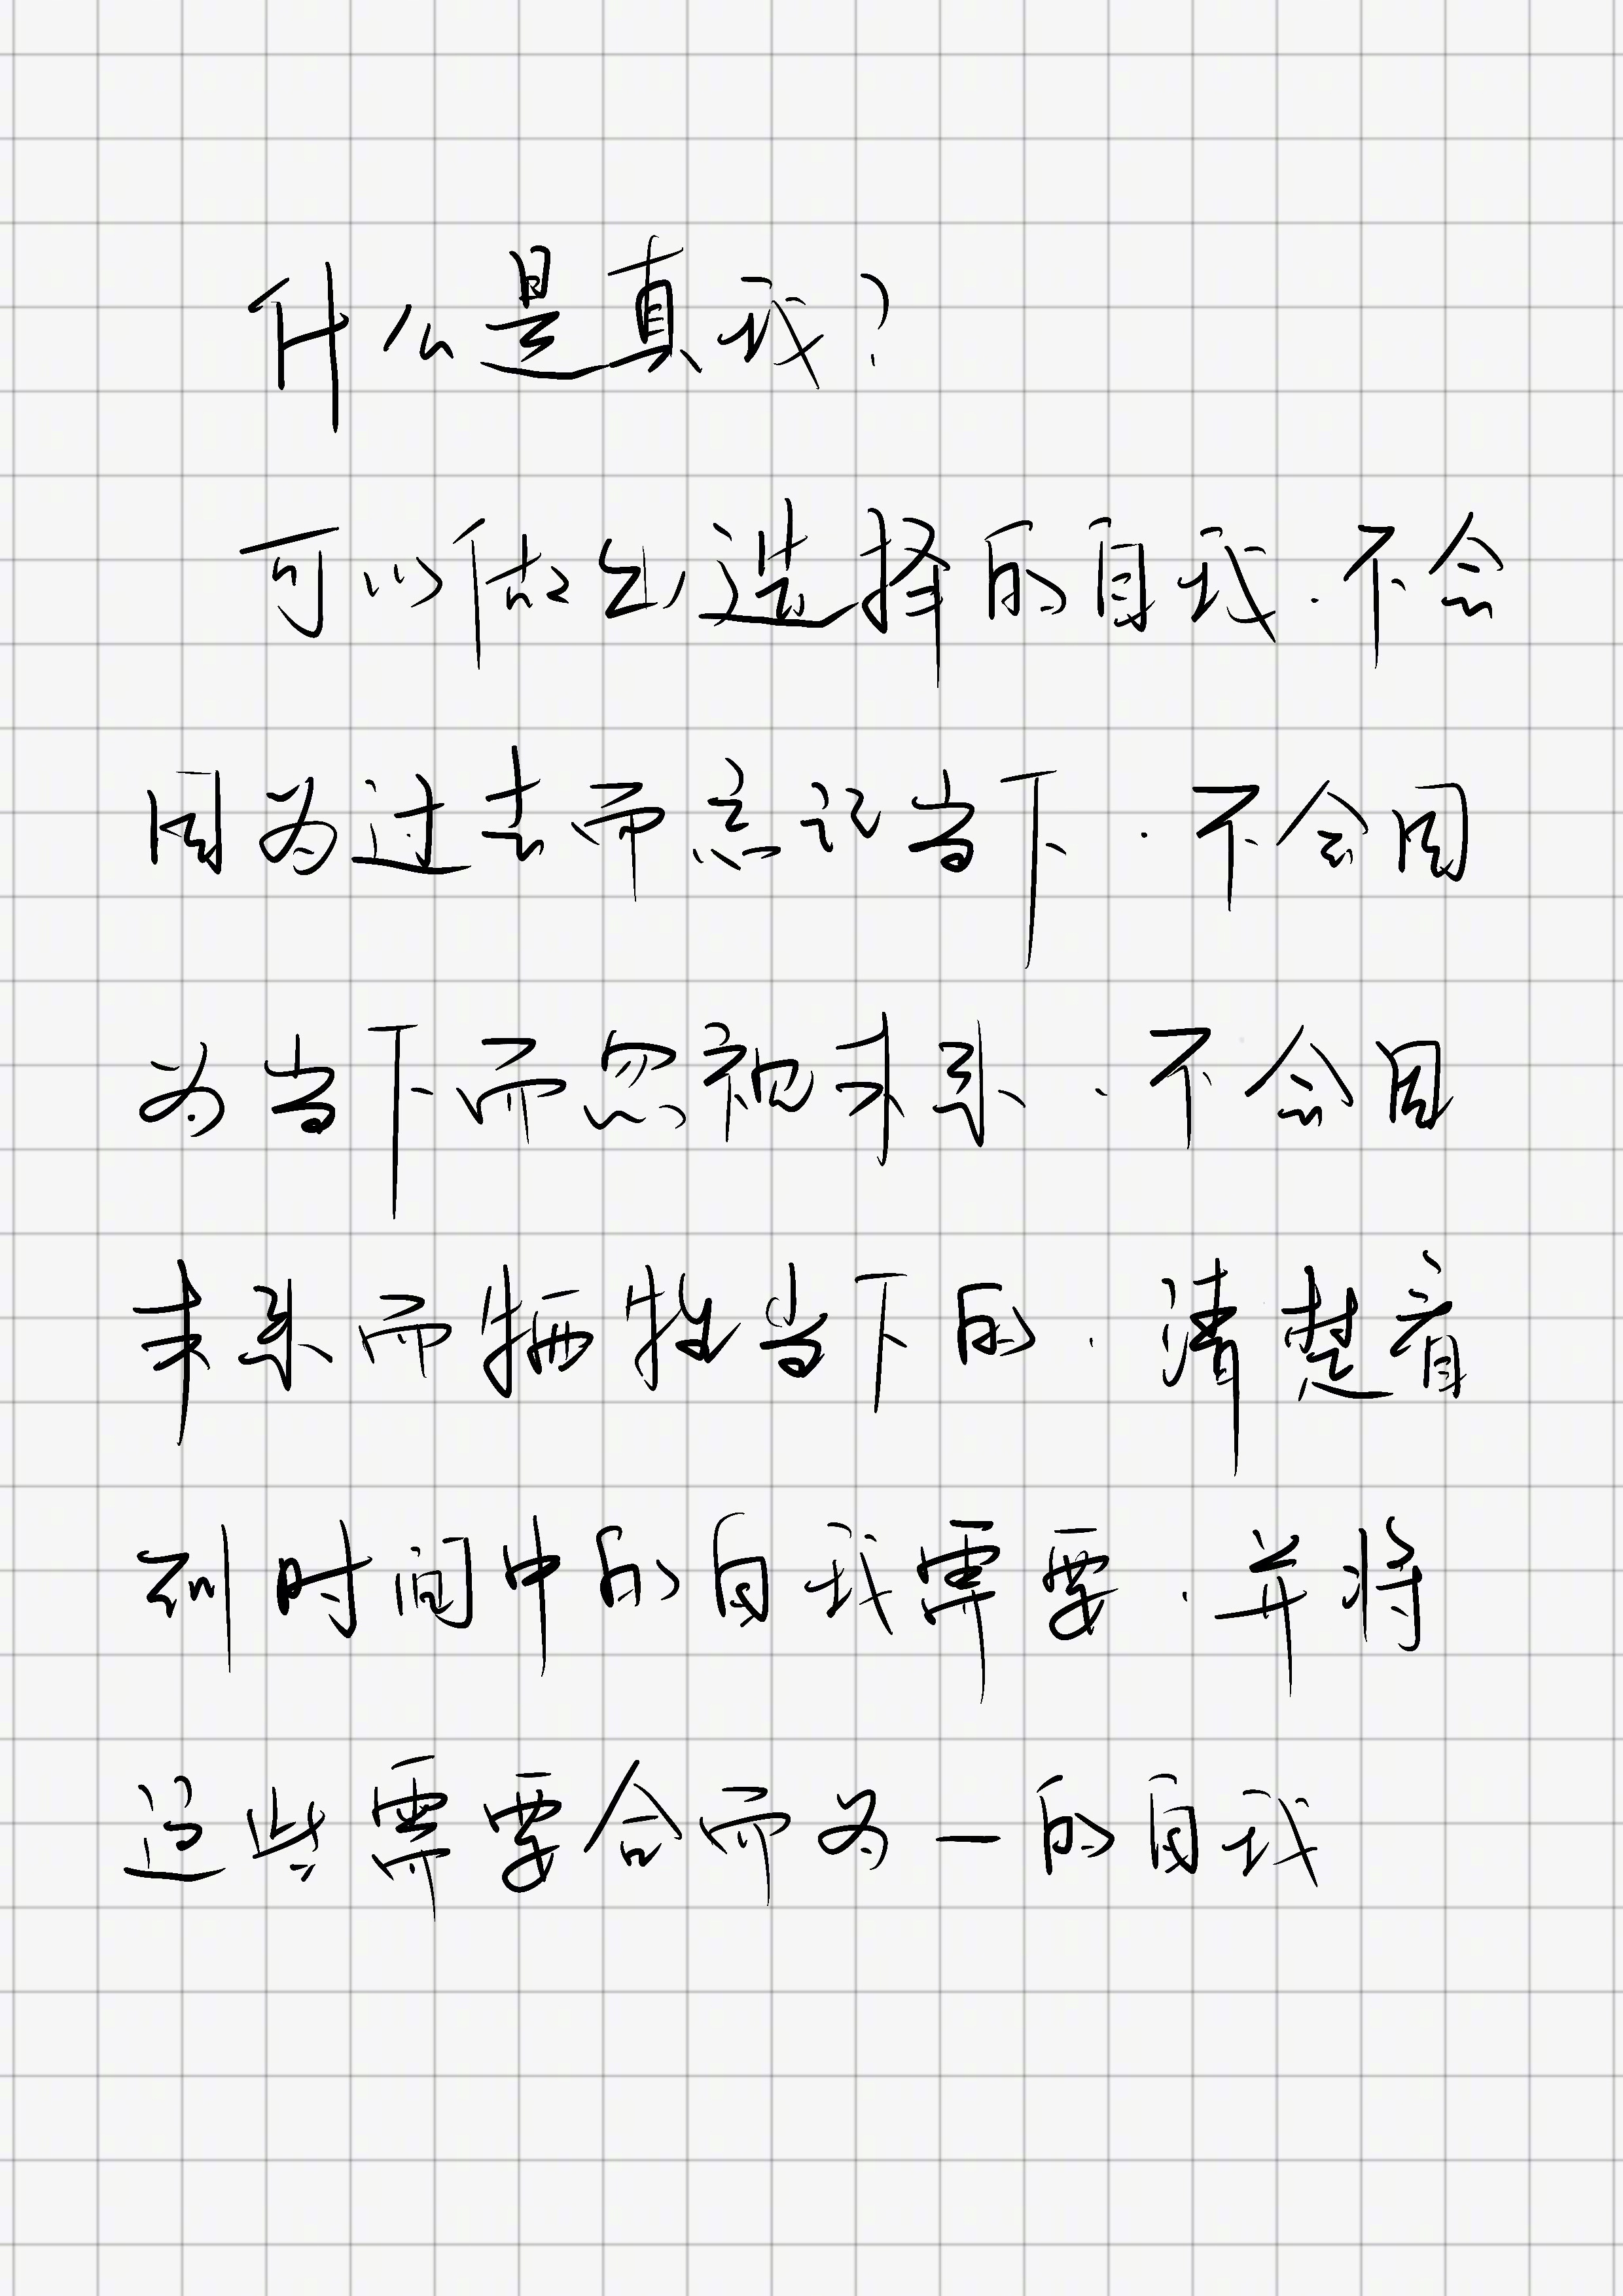 什么是真我?
可以做出选择的自我.不会
因为过去而忘记当下.不会因
为当下而忽视未来.不会因
未来而牺牲当下的.清楚看
到时间中的自我需要.并将
这些需要合而为一的自我